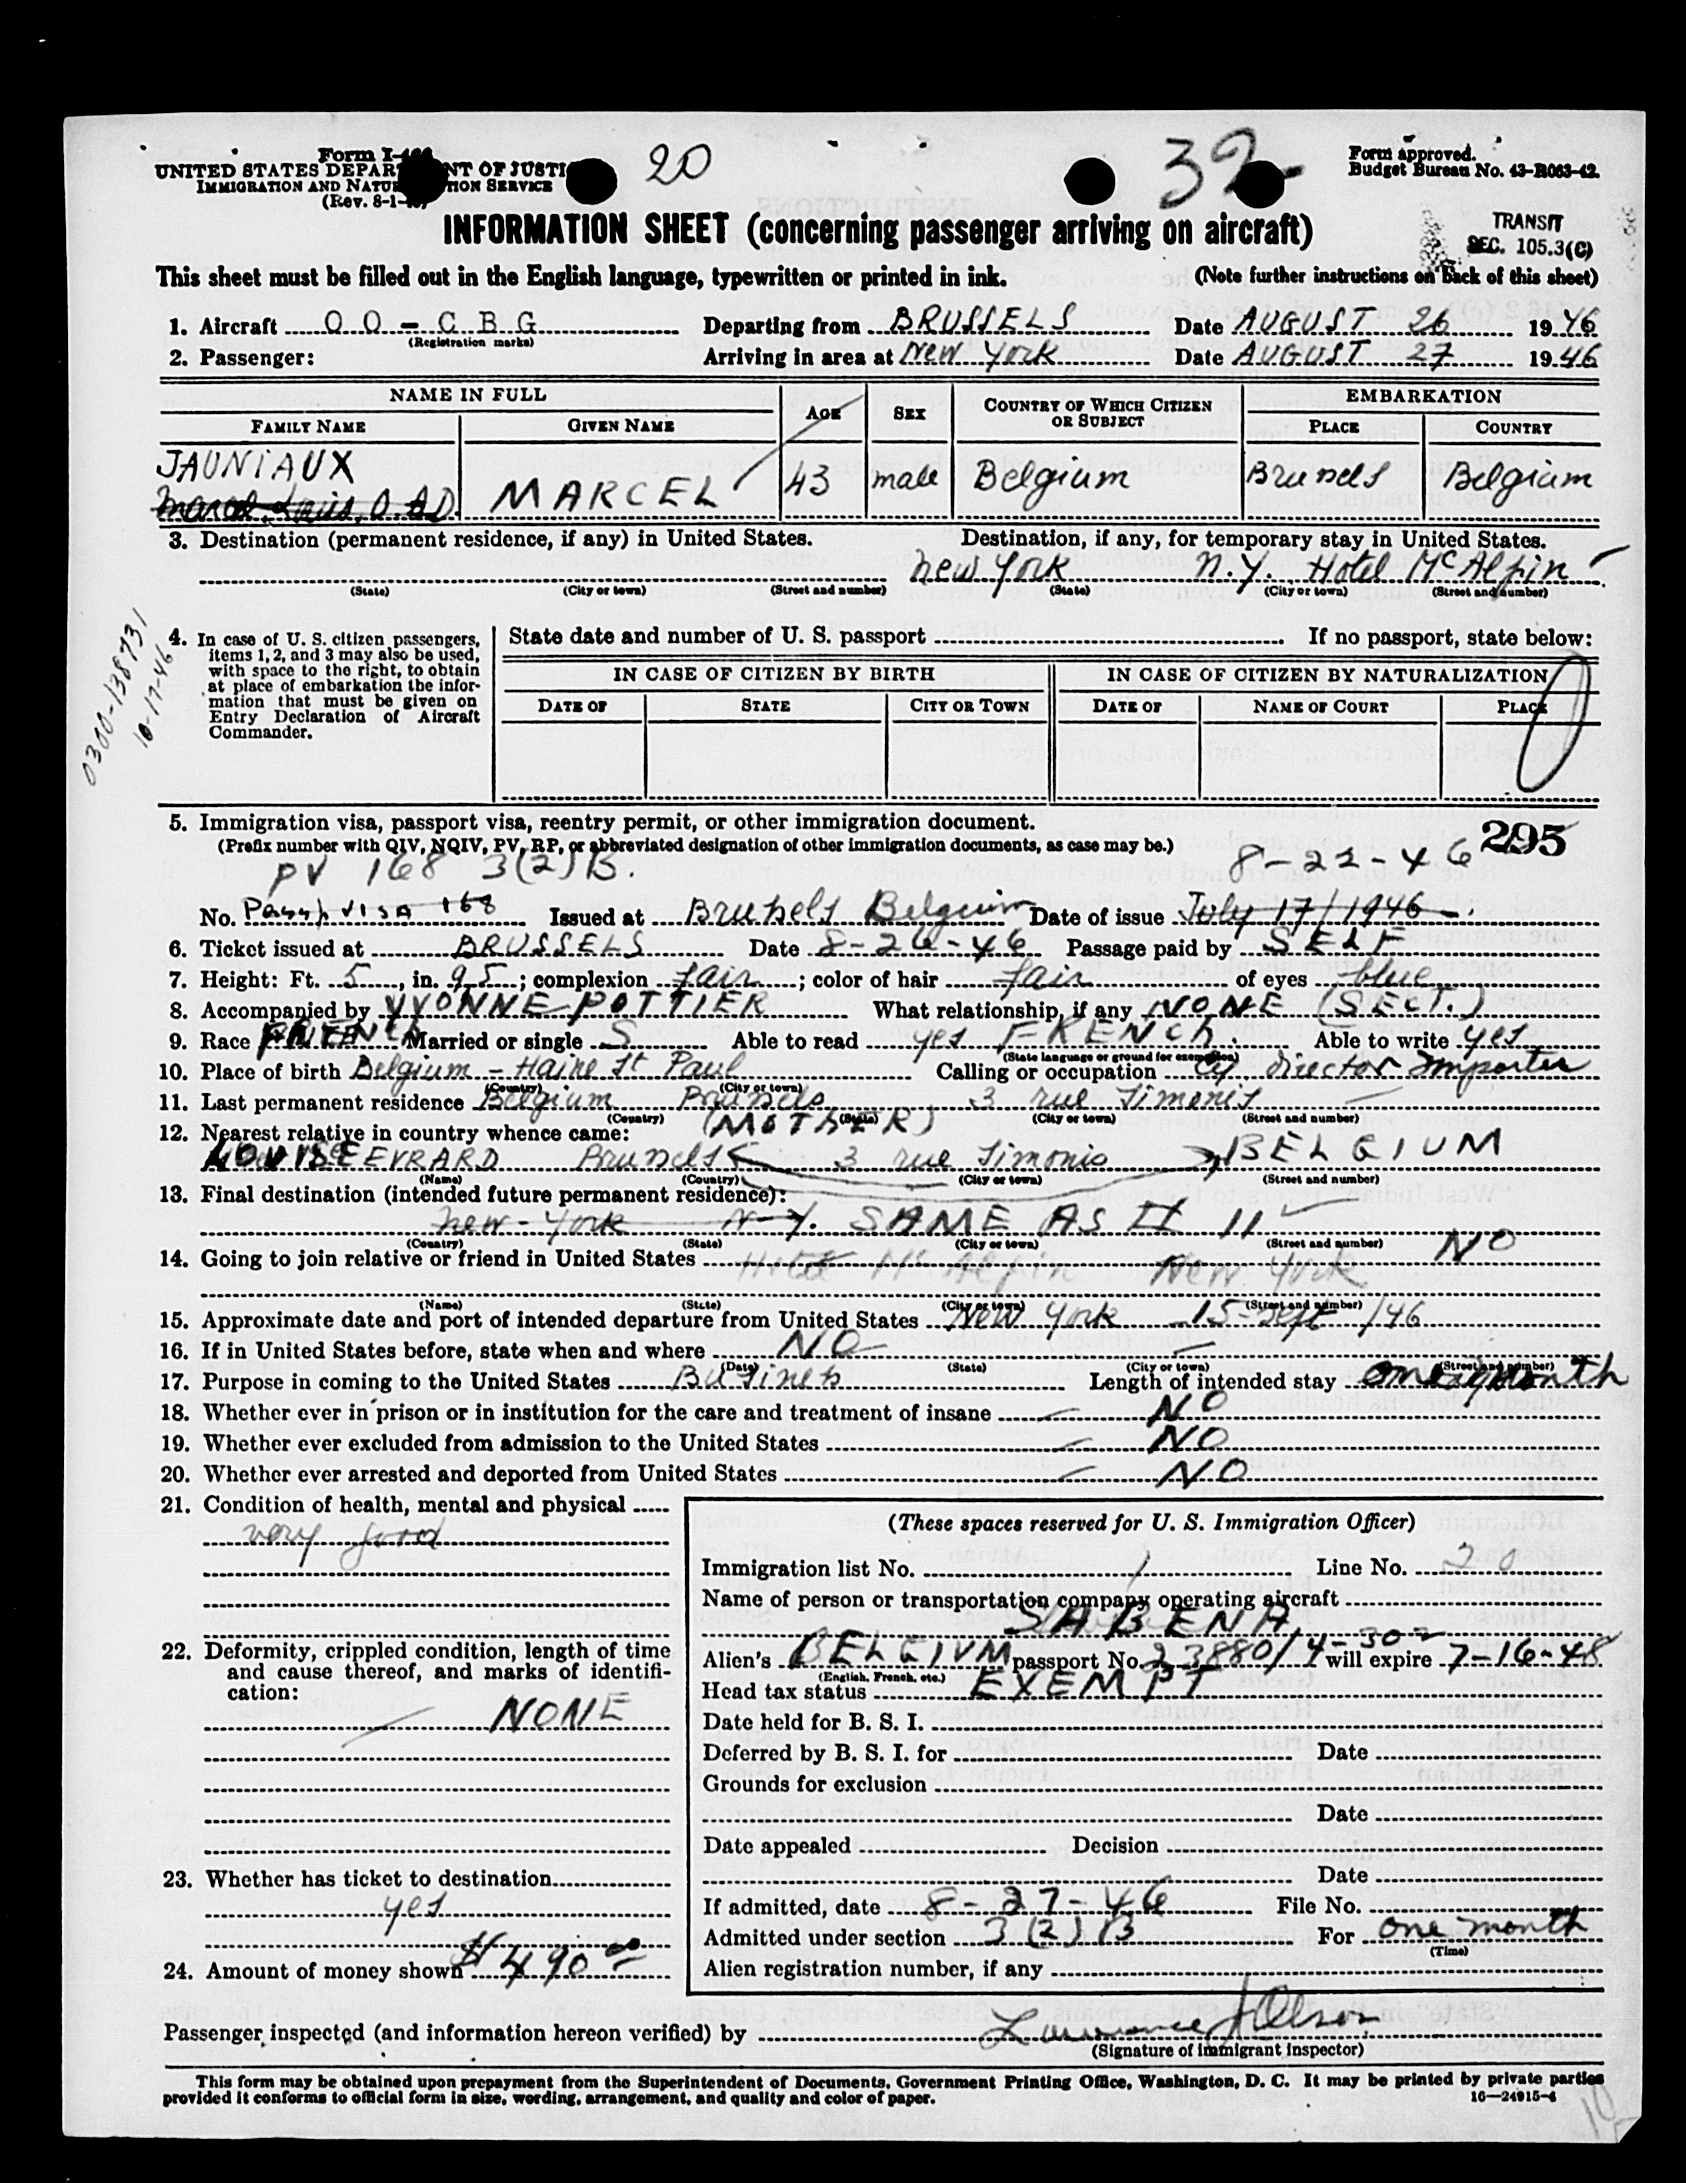 Form I-
UNITED STATES DEPAR NT OF JUSTI
IMMIGRATION AND NATU TION SERVICE
(Rev. 8-1-
20
32
Form approved.
Budget Bureau No. 43-R063-42.
INFORMATION SHEET (concerning passenger arriving on aircraft)
TRANSIT
SEC. 105.3(C)
This sheet must be filled out in the English language, typewritten or printed in ink. (Note further instructions on back of this sheet)
1. Aircraft OO-CBG Departing from BRUSSELS Date AUGUST 26 1946
(Registration marks)
2. Passenger: Arriving in area at New York Date AUGUST 27 1946
NAME IN FULL AGE SEX COUNTRY OF WHICH CITIZEN OR SUBJECT EMBARKATION
FAMILY NAME GIVEN NAME PLACE COUNTRY
JAUNIAUX
MARCEL 43 male Belgium Brussels Belgium
3. Destination (permanent residence, if any) in United States. Destination, if any, for temporary stay in United States.
New York N.Y. Hotel McAlpin
(State) (City or town) (Street and number) (State) (City or town) (Street and number)
0300-138731
10-17-46
4. In case of U. S. citizen passengers, items 1, 2, and 3 may also be used, with space to the right, to obtain at place of embarkation the information that must be given on Entry Declaration of Aircraft Commander.
State date and number of U. S. passport If no passport, state below:
IN CASE OF CITIZEN BY BIRTH IN CASE OF CITIZEN BY NATURALIZATION
DATE OF STATE CITY OR TOWN DATE OF NAME OF COURT PLACE
5. Immigration visa, passport visa, reentry permit, or other immigration document.
(Prefix number with QIV, NQIV, PV, RP, or abbreviated designation of other immigration documents, as case may be.)
295
PV 168 3(2)B. 8-22-46
No. Passp visa 168 Issued at Brussels Belgium Date of issue July 17/1946
6. Ticket issued at BRUSSELS Date 8-26-46 Passage paid by SELF
7. Height: Ft. 5, in. 9,5; complexion fair; color of hair fair of eyes blue
8. Accompanied by YVONNE POTTIER What relationship, if any NONE (SECT.)
9. Race FRENCH Married or single S Able to read yes FRENCH Able to write yes
(State language or ground for exemption)
10. Place of birth Belgium - Haine St Paul Calling or occupation Cy director Importer
(Country) (City or town)
11. Last permanent residence Belgium Brussels 3 rue Simonis
(Country) (State) (City or town) (Street and number)
12. Nearest relative in country whence came: (MOTHER)
LOUISE EVRARD Brussels 3 rue Simonis BELGIUM
(Name) (Country) (City or town) (Street and number)
13. Final destination (intended future permanent residence):
New-York N-Y. SAME AS # 11
(Country) (State) (City or town) (Street and number)
14. Going to join relative or friend in United States Hotel Mc Alpin New York NO
(Name) (State) (City or town) (Street and number)
15. Approximate date and port of intended departure from United States New York 15-Sept/46
16. If in United States before, state when and where NO
(Date) (State) (City or town) (Street and number)
17. Purpose in coming to the United States Business Length of intended stay One Month
18. Whether ever in prison or in institution for the care and treatment of insane NO
19. Whether ever excluded from admission to the United States NO
20. Whether ever arrested and deported from United States NO
21. Condition of health, mental and physical
very good
22. Deformity, crippled condition, length of time and cause thereof, and marks of identification:
NONE
23. Whether has ticket to destination
yes
24. Amount of money shown $490 00
(These spaces reserved for U. S. Immigration Officer)
Immigration list No. 1 Line No. 20
Name of person or transportation company operating aircraft
SABENA
Alien's BELGIUM passport No. 23880/4-302 will expire 7-16-48
(English, French, etc.)
Head tax status EXEMPT
Date held for B. S. I.
Deferred by B. S. I. for Date
Grounds for exclusion
Date
Date appealed Decision
Date
If admitted, date 8-27-46 File No.
Admitted under section 3(2)B For one month
(Time)
Alien registration number, if any
Passenger inspected (and information hereon verified) by Lawrence J Olson
(Signature of immigrant inspector)
This form may be obtained upon prepayment from the Superintendent of Documents, Government Printing Office, Washington, D. C. It may be printed by private parties
provided it conforms to official form in size, wording, arrangement, and quality and color of paper. 16—24915-4